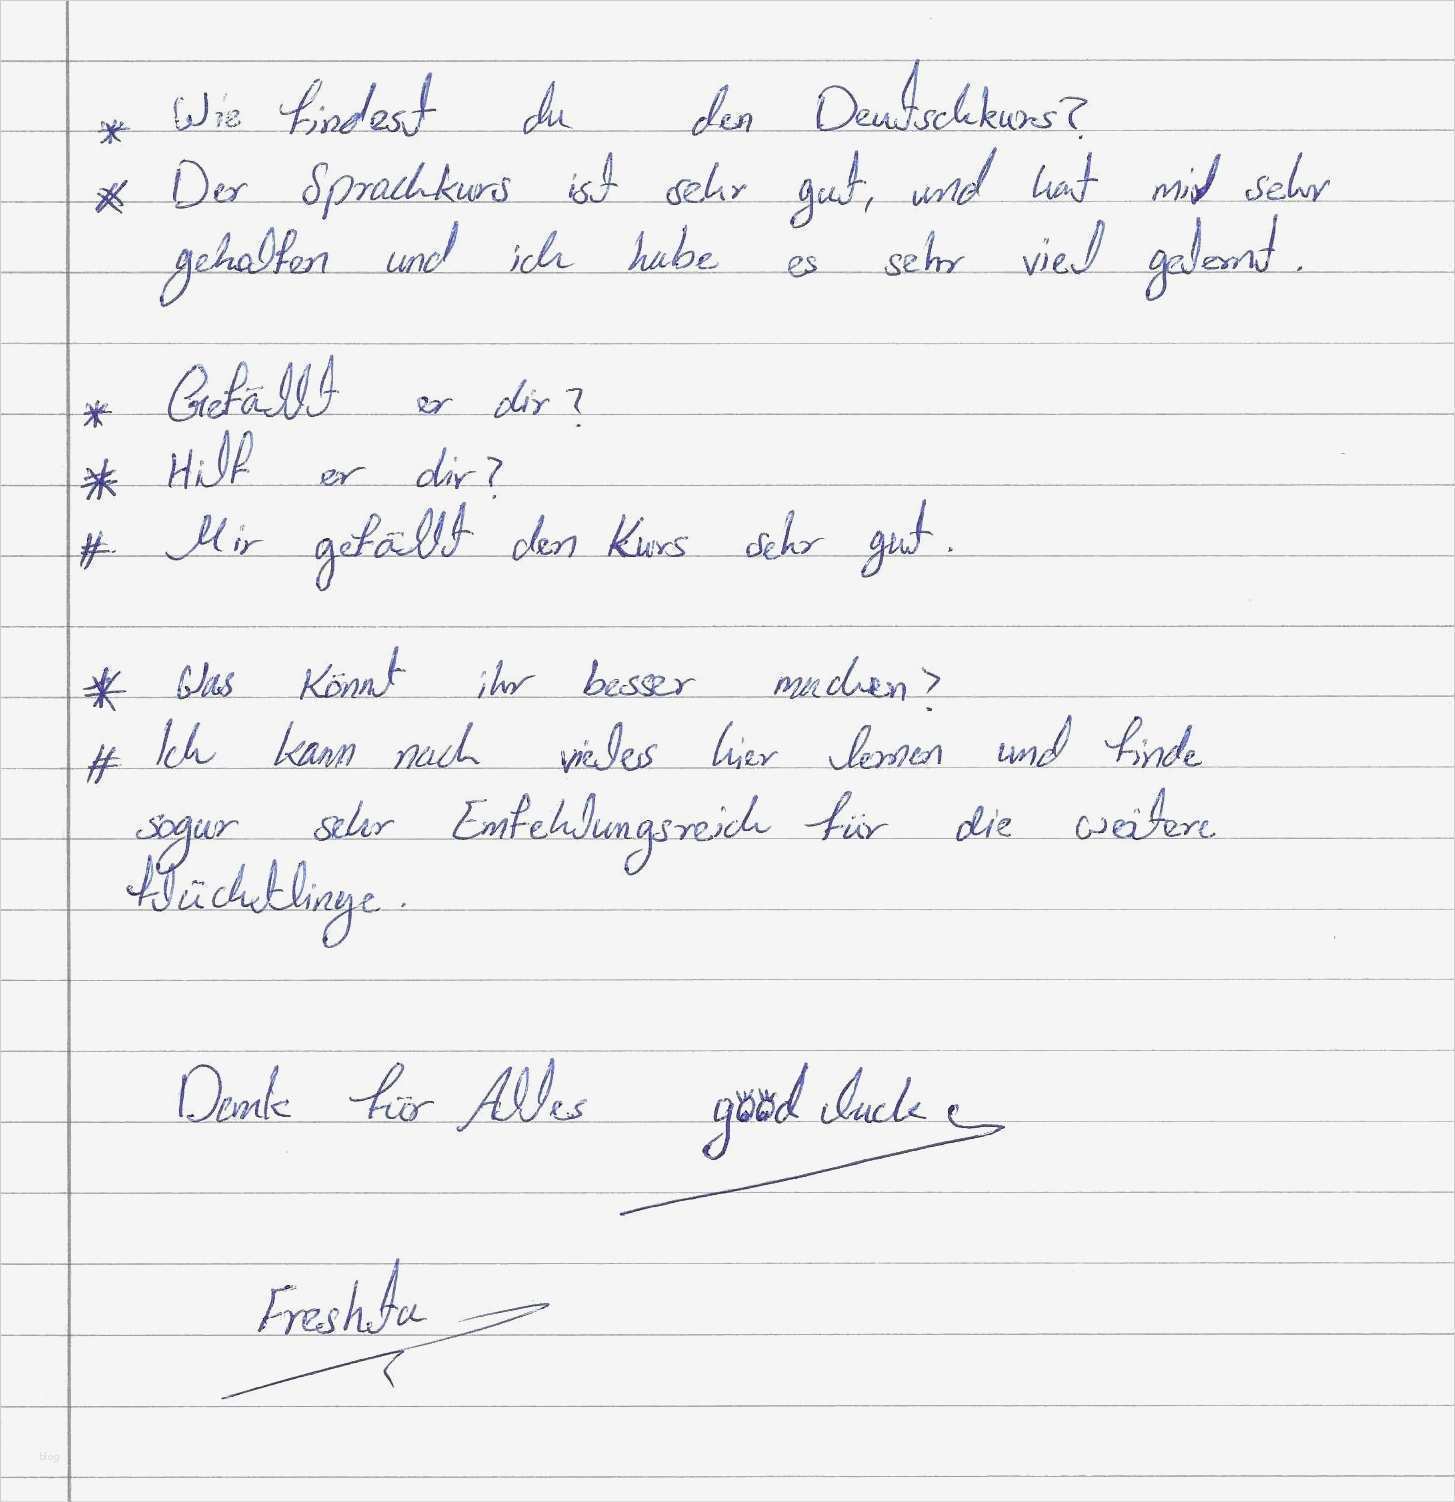 * Wie findest du den Deutschkurs?
* Der Sprachkurs ist sehr gut, und hat mir sehr
gehalfen und ich habe es sehr viel gelernt.
* Gefällt er dir?
* Hilf er dir?
# Mir gefällt den Kurs sehr gut.
* Was könnt ihr besser machen?
# Ich kann noch vieles hier lernen und finde
sogar sehr Emfehlungsreich für die weitere
flüchtlinge.
Dank für Alles good luck
Freshta
blog